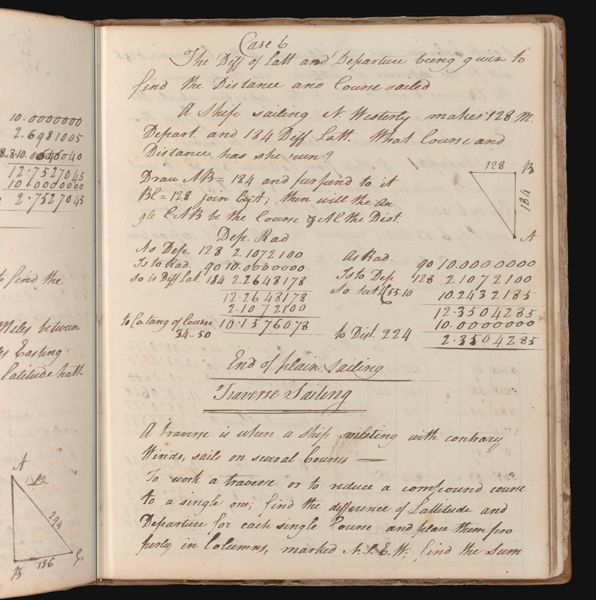 10.0000000
2.6981005
12.7527045
10.0000000
2.7527045
to find the
Miles between
Easting
Latitude hath
A
294
196
B
C
Case 6
The Diff of Latt and Departure being given to
find the Distance and Course sailed
A Ship sailing N Westerly makes 128 M.
Depart. and 184 Diff Latt. What Course and
Distance has she run?
Draw AB = 184 and
to it
BC = 128 join C&A; then will the an
gle CAB be the Course & AC the Dist
128 B
184
A
Dep. Rad
As Depe. 128 2.1072100
Is to Rad. 90 10.0000000
So is Diff Lat 184 2.2648178
12.2648178
2.1072100
to Co. tang of Course 10.1576078
34-50
As Rad. 90 10.0000000
Is to Dep 128 2.1072100
So sect 55.10 10.2432185
12.3504285
10.0000000
to Dist. 224 2.3504285
End of plain sailing
Traverse Sailing
A traverse is when a Ship meeting with contrary
Winds, sails on several Courses —
To work a traverse or to reduce a compound course
to a single one; find the difference of Lattitude and
Departure for each single Course and place them pro
perly in Columns, marked N.S.E.W. find the Sum